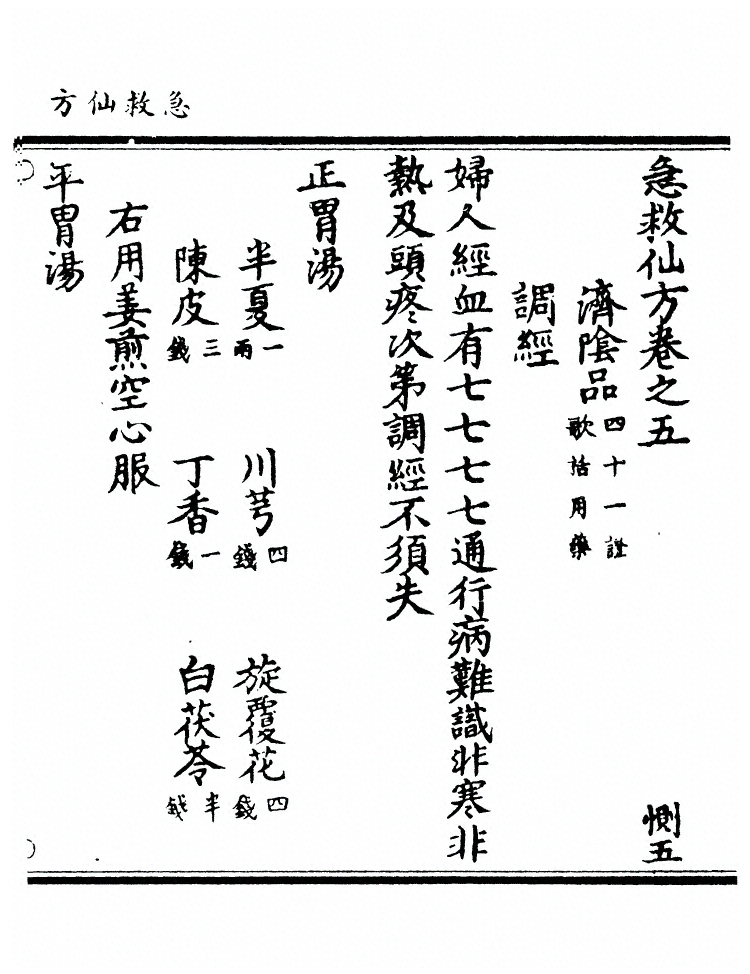 急救仙方
急救仙方卷之五 惻五
濟陰品四十一證歌括用藥
調經
婦人經血有七七七七通行病難識非寒非
熱及頭疼次第調經不須失
正胃湯
半夏一兩 川芎四錢 旋覆花四錢
陳皮三錢 丁香一錢 白茯苓半錢
右用姜煎空心服
平胃湯